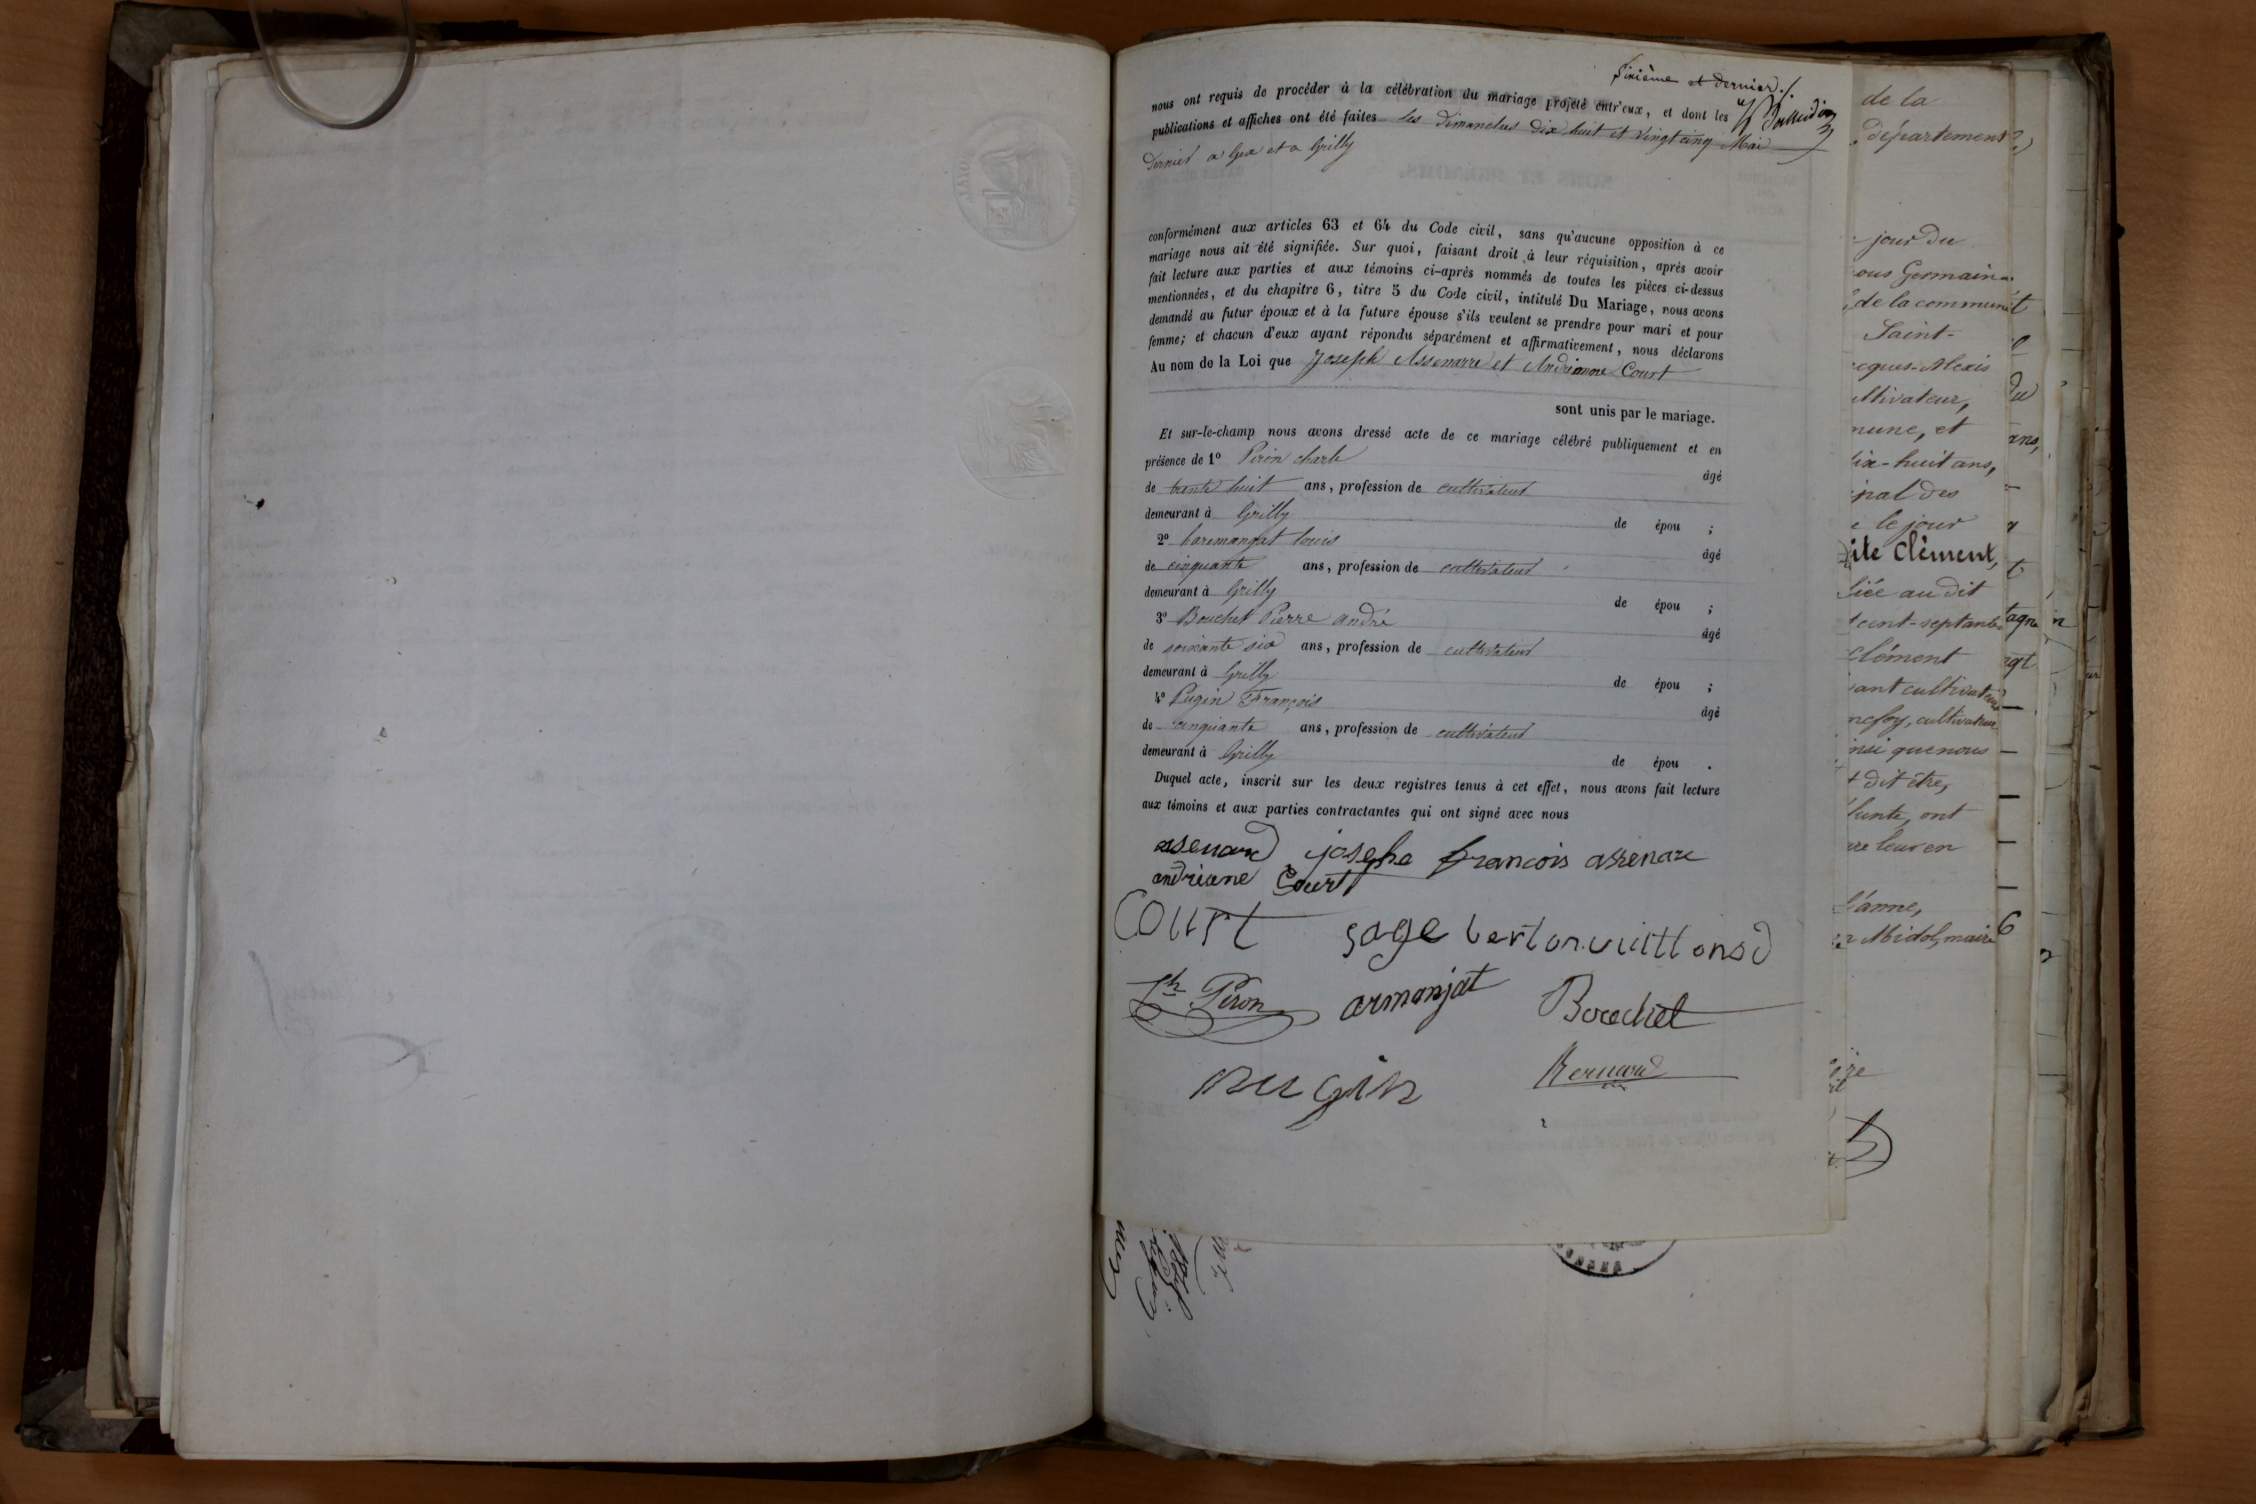 Sixième et dernier
nous ont requis de procéder à la célébration du mariage projeté entr'eux, et dont les
publications et affiches ont été faites les dimanches dix huit et vingt cinq Mai
dernier a Gex et a Grilly
conformément aux articles 63 et 64 du Code civil, sans qu'aucune opposition à ce
mariage nous ait été signifiée. Sur quoi, faisant droit à leur réquisition, après avoir
fait lecture aux parties et aux témoins ci-après nommés de toutes les pièces ci-dessus
mentionnées, et du chapitre 6, titre 5 du Code civil, intitulé Du Mariage, nous avons
demandé au futur époux et à la future épouse s'ils veulent se prendre pour mari et pour
femme; et chacun d'eux ayant répondu séparément et affirmativement, nous déclarons
Au nom de la Loi que Joseph Assenarre et Andrianne Court
sont unis par le mariage.
Et sur-le-champ nous avons dressé acte de ce mariage célébré publiquement et en
présence de 1º Piron charle
âgé
de trente huit ans, profession de cultivateur
demeurant à Grilly de épou ;
2º louis
âgé
de cinquante ans, profession de cultivateur
demeurant à Grilly de épou ;
3º Bouchet Pierre andré
âgé
de soixante six ans, profession de cultivateur
demeurant à Grilly de épou ;
4º Pugin François
âgé
de cinquante ans, profession de cultivateur
demeurant à Grilly de épou .
Duquel acte, inscrit sur les deux registres tenus à cet effet, nous avons fait lecture
aux témoins et aux parties contractantes qui ont signé avec nous
josephe francois assenare
andriane Court
Court sage
Ch Piron armanjat Bouchet
pugin Bernard
de la
département
jour du
ous Germain
de la commun
Saint-
cques-Alexis
ltivateur,
mune, et
dix-huit ans,
ipal des
e le jour
ite Clément,
liée au dit
cent-septante
Clément
vant cultivateur
ncfoy, cultivateur
insi que nous
t dit être,
funte, ont
ure leur en
l'anne,
Midol, maire